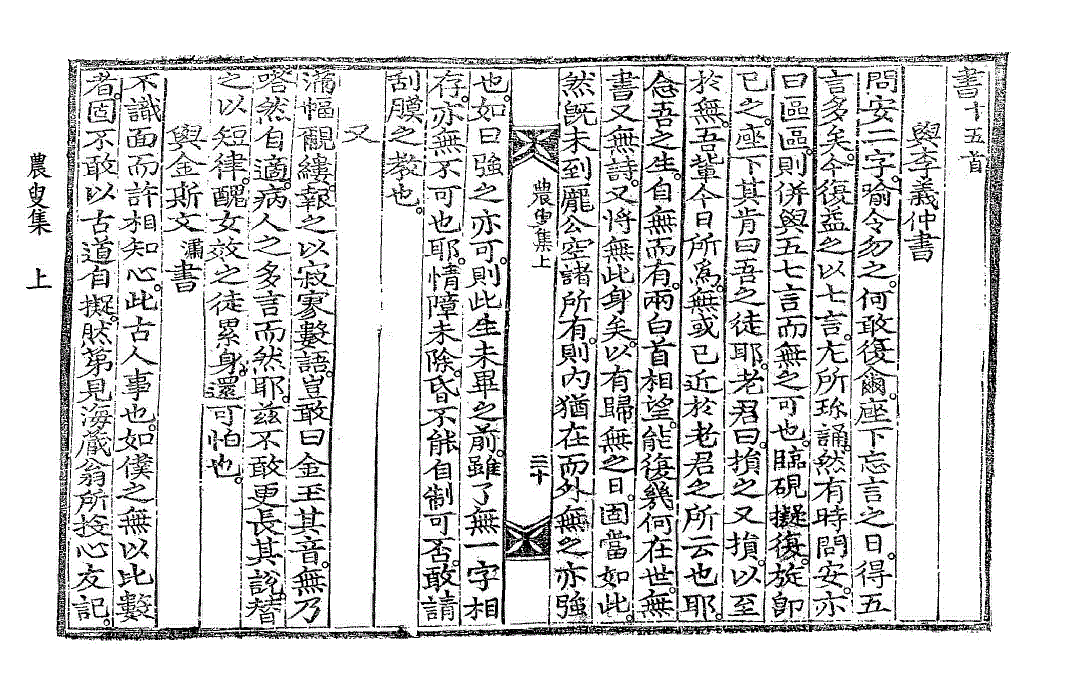 書十五首
與李義仲書
問安二字喩令勿之何敢復爾座下忘言之日得五
言多矣今復益之以七言尤所珍誦然有時問安亦
曰區區則併與五七言而無之可也臨硯擬復旋卽
已之座下其肯曰吾之徒耶老君曰損之又損以至
於無吾輩今日所爲無或已近於老君之所云也耶
念吾之生自無而有兩白首相望能復幾何在世無
書又無詩又將無此身矣以有歸無之日固當如此
然旣未到龐公空諸所有則內猶在而外無之亦強
農叟集上
三十
也如曰強之亦可則此生未畢之前雖了無一字相
存亦無不可也耶情障未除昏不能自制可否敢請
刮膜之敎也
又
滿幅覶縷報之以寂寥數語豈敢曰金玉其音無乃
嗒然自適病人之多言而然耶茲不敢更長其說替
之以短律醜女效之徒累身還可怕也
與金斯文 瀟 書
不識面而許相知心此古人事也如僕之無以比數
者固不敢以古道自擬然第見海蔵翁所投心友記
農叟集 上